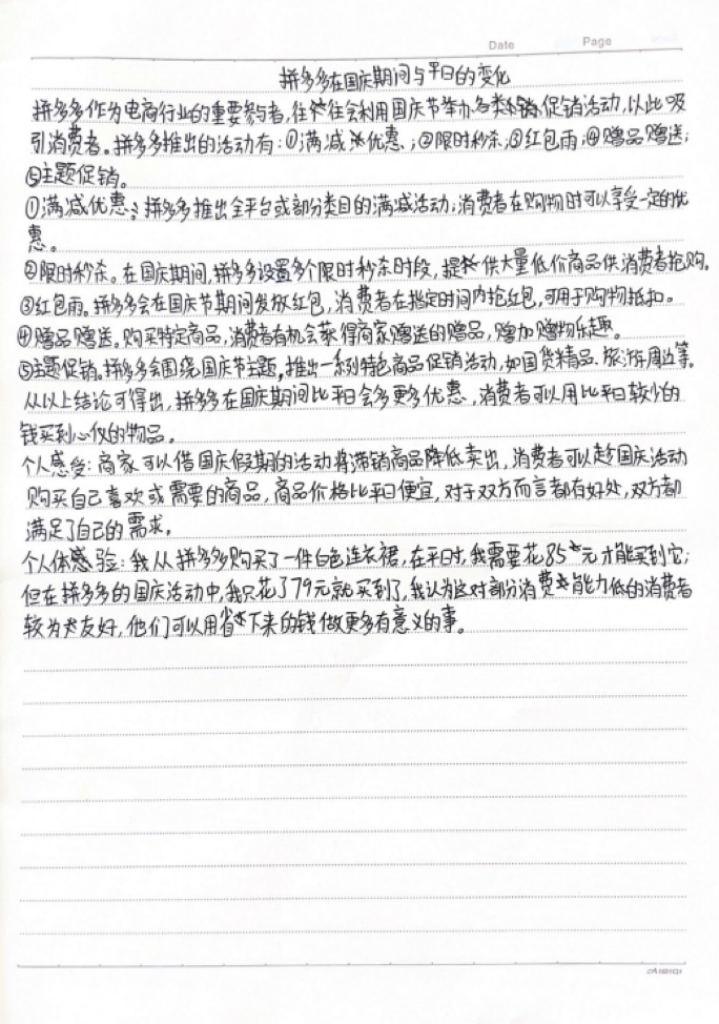 Date
Page
拼多多在国庆期间与平日的变化
拼多多作为电商行业的重要参与者,往往会利用国庆节举办各类促销活动,以此吸
引消费者。拼多多推出的活动有:①满减优惠;②限时秒杀;③红包雨;④赠品赠送;
⑤主题促销。
①满减优惠:拼多多推出全平台或部分类目的满减活动;消费者在购物时可以享受一定的优
惠。
②限时秒杀。在国庆期间,拼多多设置多个限时秒杀时段,提供大量低价商品供消费者抢购。
③红包雨。拼多多会在国庆节期间发放红包,消费者在指定时间内抢红包,可用于购物抵扣。
④赠品赠送。购买特定商品,消费者有机会获得商家赠送的赠品,增加赠物乐趣。
⑤主题促销。拼多多会围绕国庆节主题,推出一系列特色商品促销活动,如国货精品、旅游周边等。
从以上结论可得出,拼多多在国庆期间比平日会多更多优惠,消费者可以用比平日较少的
钱买到心仪的物品。
个人感受:商家可以借国庆假期的活动将滞销商品降低卖出,消费者可以趁国庆活动
购买自己喜欢或需要的商品,商品价格比平日便宜,对于双方而言都有好处,双方都
满足了自己的需求。
个人体验:我从拼多多购买了一件白色连衣裙,在平日时,我需要花85元才能买到它;
但在拼多多的国庆活动中,我只花了79元就买到了,我认为这对部分消费能力低的消费者
较为友好,他们可以用省下来的钱做更多有意义的事。